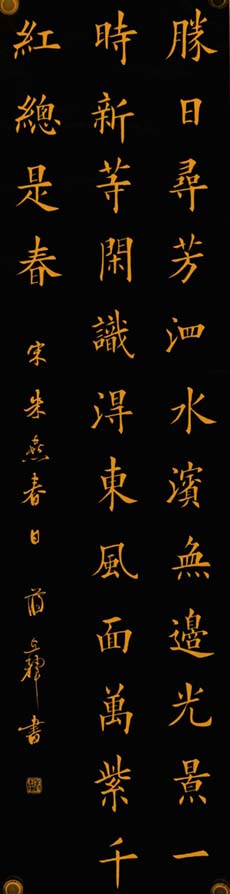 勝日尋芳泗水濱無邊光景一
時新等閑識得東風面萬紫千
紅總是春
宋朱熹春日 書